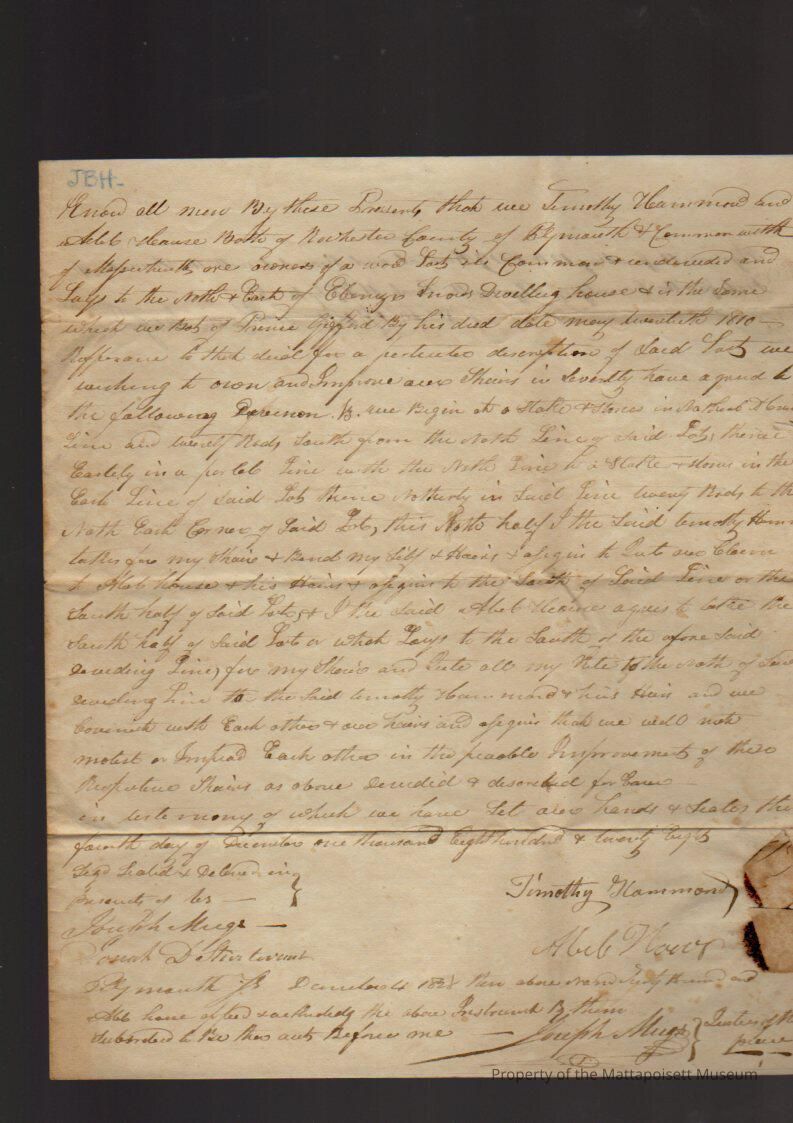 JBH-
Know all men By these Presents that we Timothy Hammond and
Abeb House Both of Rochester County of Plymouth & Common with
of Massachusetts are owners of a wood Lott in Common & undevided and
Lays to the North & East of Ebenezer Dwelling house & is the Same
which we Bot of Prince Gifford By his deed date may twentieth 1810 -
Refferance to that deed for a perticuler description of Said Lott we
wishing to own and Improve our Shairs in Severilty have agreed to
the following Devision we Begin at a Stake & Stones in
Line and twenty Rods South from the North Line of Said Lott thence
Easterly in a Line with the North Line to a Stake & stones in the
East Line of Said Lott thence Notherly in Said Line twenty Rods to the
North East Corner of Said Lott, this North half I the Said timothy
takes for my Share & Bend my Self & Hairs & assigns to Quit our Claim
to Abeb House & his Hairs & assigns to the South of Said Line or the
South half of Said Lott, & I the Said Abeb House agree to take the
South half of Said Lott or what Lays to the South of the afore Said
deviding Line, for my Share and Quit all my to the North of Said
deviding Line to the Said timothy Hammond & his Hairs and we
with Each other & our hairs and assigns that we will not
molest or Each other in the peacable Improvement of there
Respective Shairs as above devided & described for Ever
in testimony of which we have Set our hands & Seales this
fourth day of December one thousand Eight hundred & twenty Eight
Sealed & Delivered in
presents of Us -
Joseph Meigs -
Timothy Hammond
Abeb House
Plymouth Ss December 4 1828 then above and
Abeb have the above Instrument By them
to Be Before me - Joseph Meigs Justice of the
peace
Property of the Mattapoisett Museum